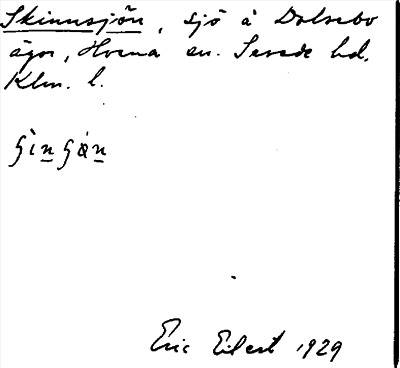 Skinnsjön, sjö å Dalsebo
ägor, Hvena sn. Sevede hd.
Klm. l.
Eric Eilert 1929